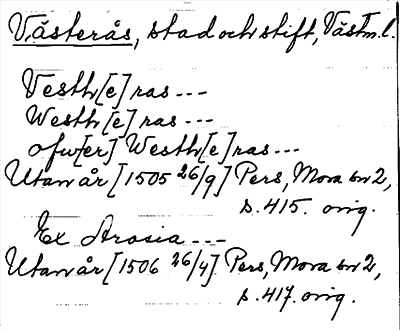 Västerås, stad och stift, Västm. l.
Vesth[e]ras ---
Westh[e]ras ---
ofw[er] Westh[e]ras ---
Utan år [1505 26/9] Pers, Mora br 2,
s. 415. orig.
Ex Arosia ---
Utan år [1506 26/4] Pers, Mora br 2,
s. 417. orig.